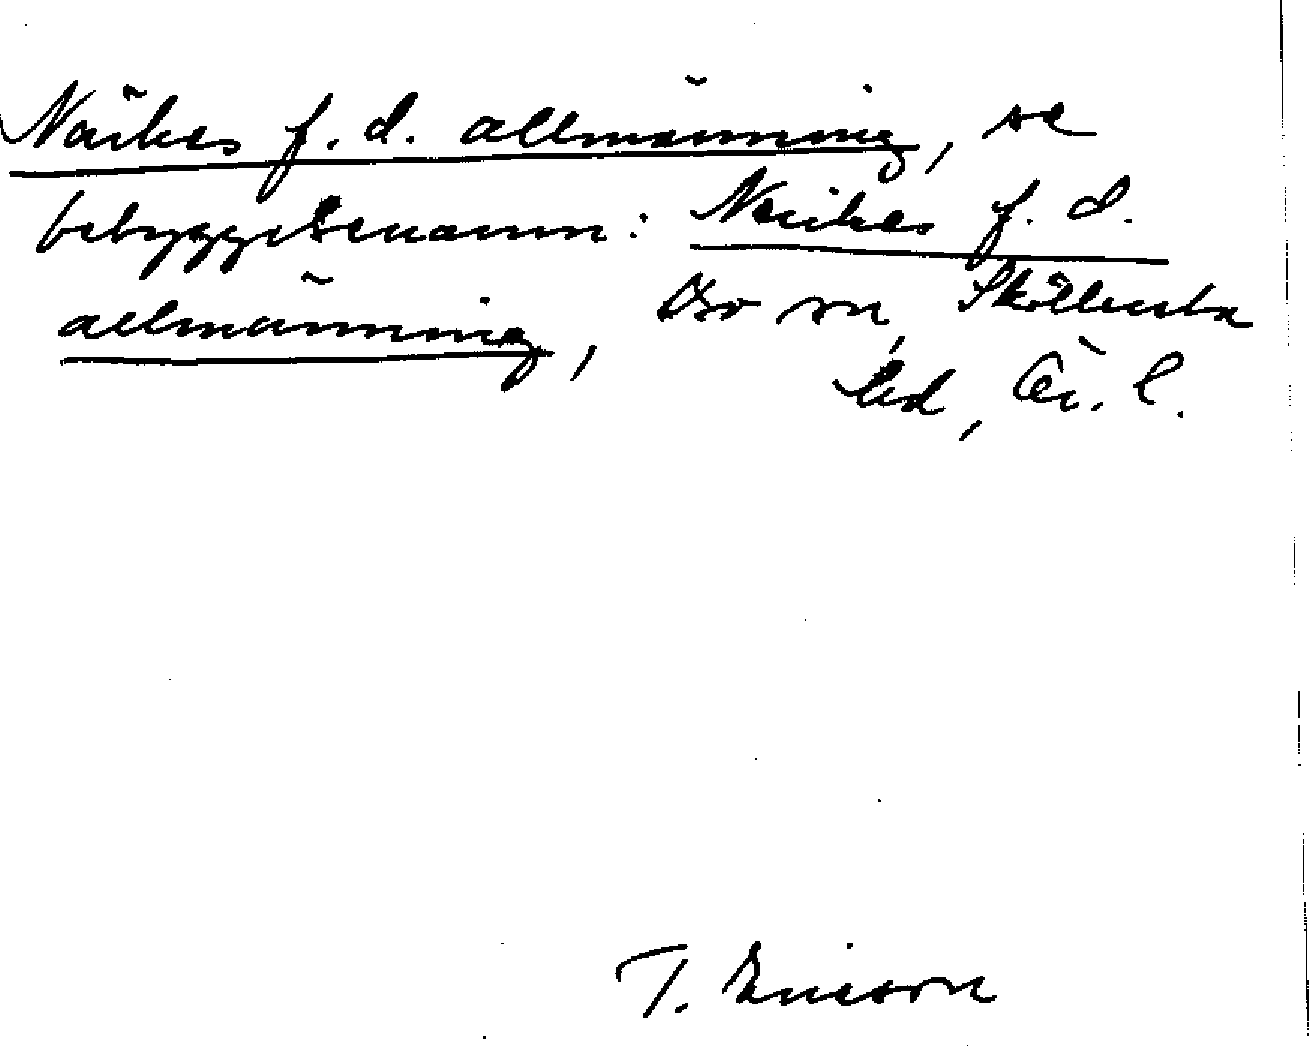 Närkes f. d. allmänning, se
bebyggelsenamn: Närkes f. d.
allmänning, Asker sn, Sköllersta
hd, Ör. l.
T. Ericson